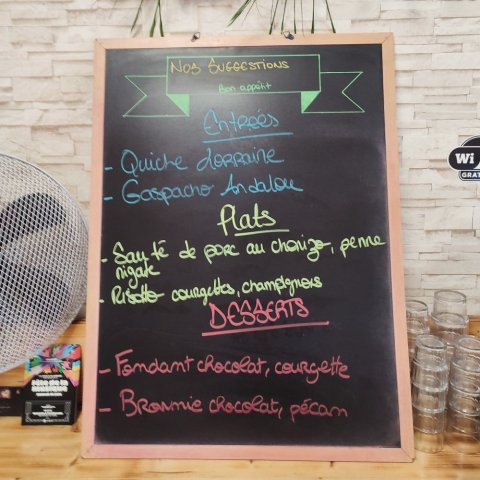 Nos Suggestions
Bon appétit
Entrées
- Quiche Lorraine
- Gaspacho Andalou
Plats
- Sauté de porc au chorizo, penne
rigate
- Risotto courgettes, champignons
DESSERTS
- Fondant chocolat, courgette
- Brownie chocolat, pécan
Wi
GRAT